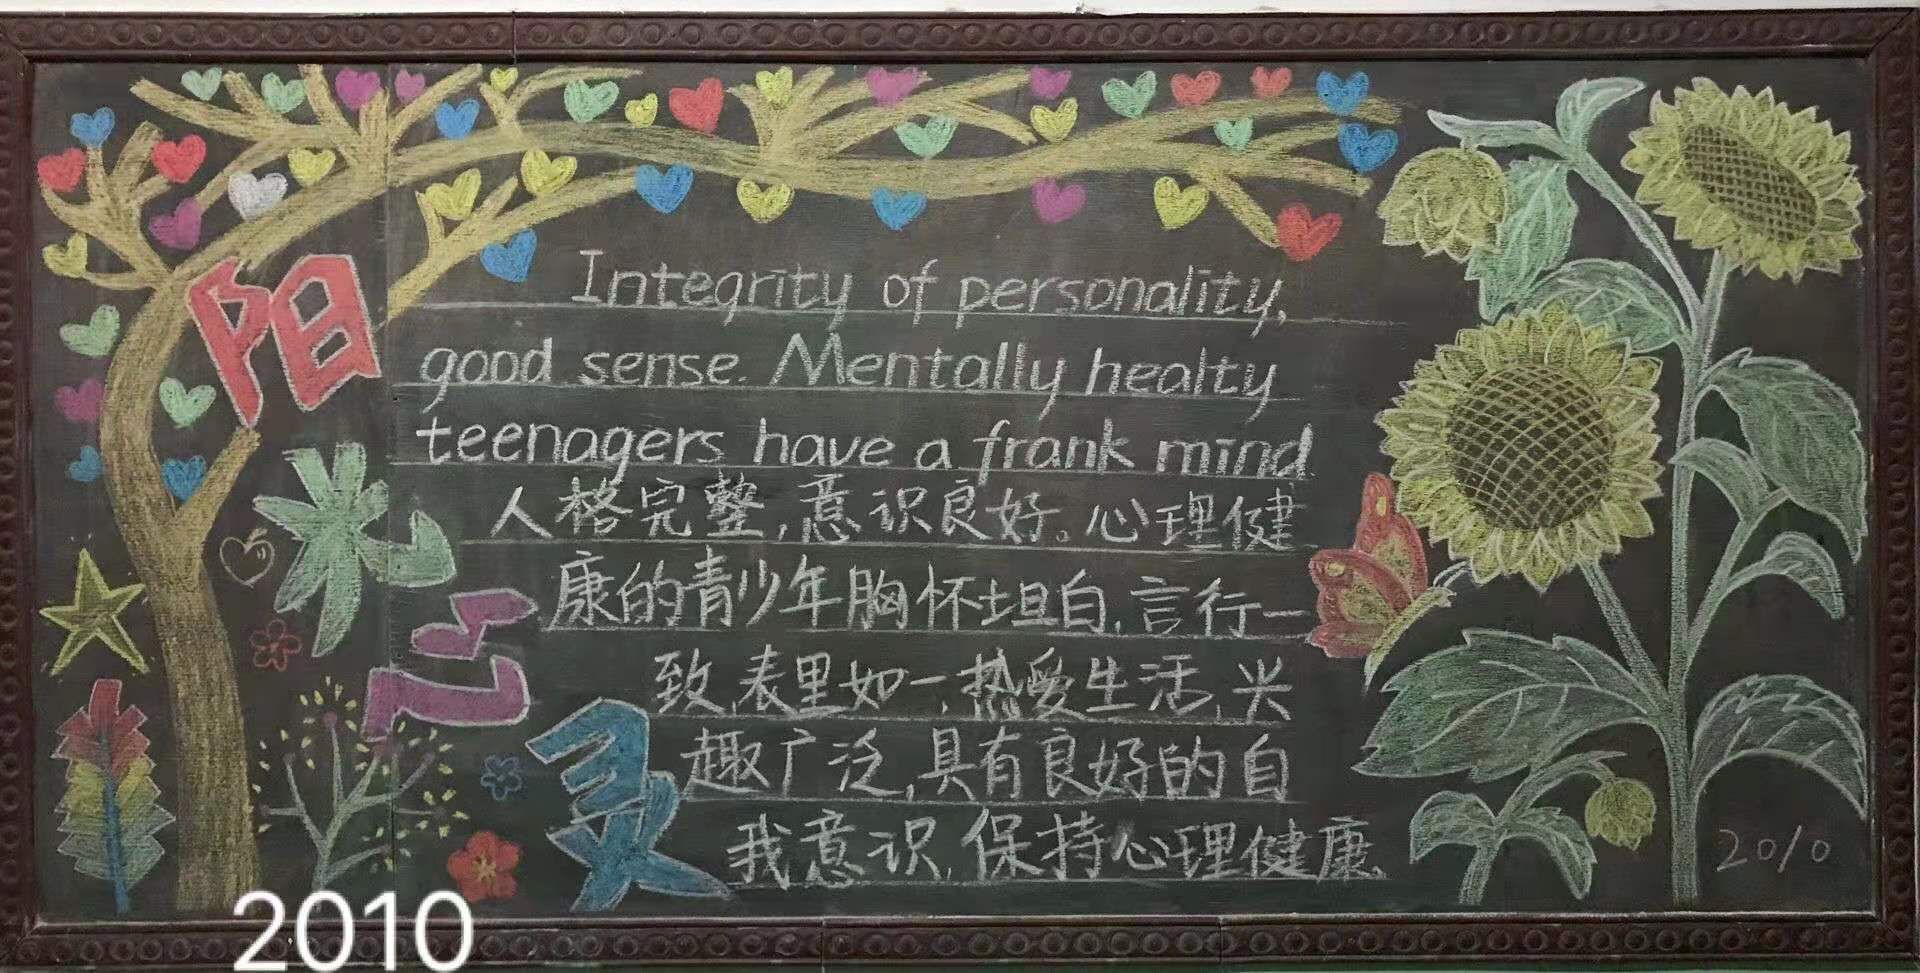 阳
光
心
灵
Integrity of personality,
good sense. Mentally healty
teenagers have a frank mind
人格完整,意识良好。心理健
康的青少年胸怀坦白,言行一
致,表里如一,热爱生活,兴
趣广泛,具有良好的自
我意识,保持心理健康.
2010
2010